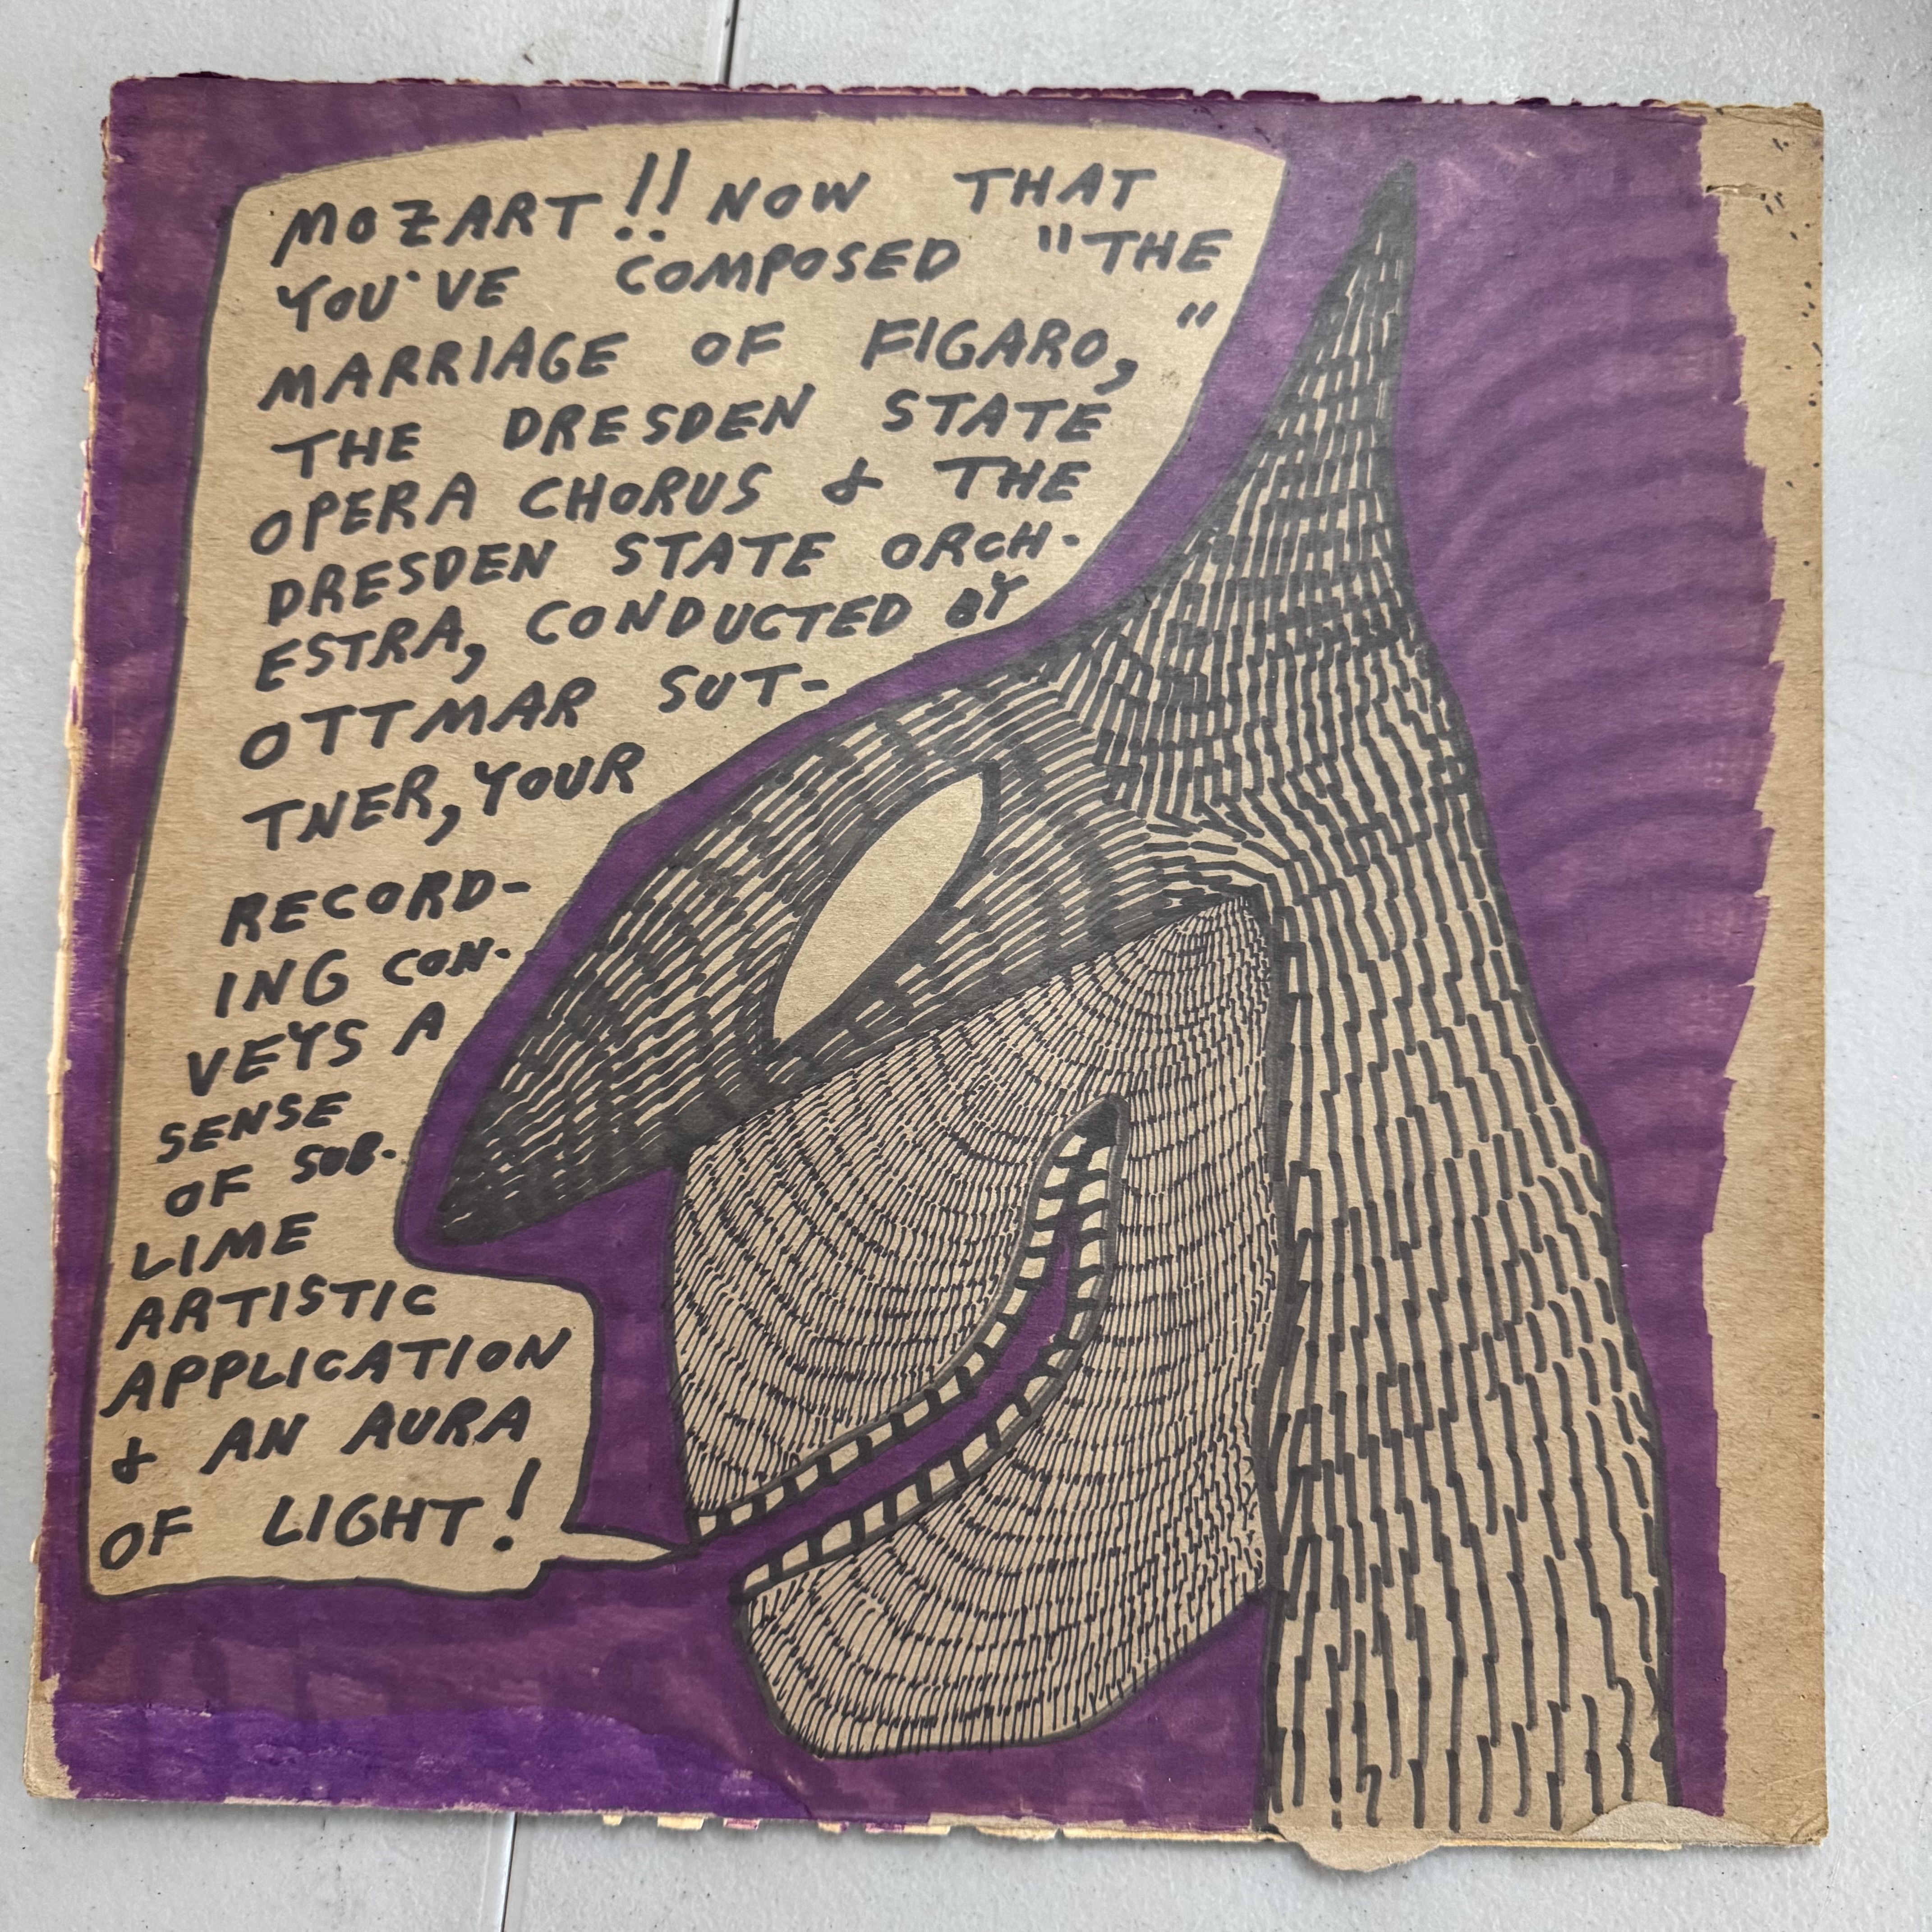 MOZART!! NOW THAT
YOU'VE COMPOSED "THE
MARRIAGE OF FIGARO,"
THE DRESDEN STATE
OPERA CHORUS & THE
DRESDEN STATE ORCH-
ESTRA, CONDUCTED BY
OTTMAR SUT-
TNER, YOUR
RECORD-
ING CON-
VEYS A
SENSE
OF SUB-
LIME
ARTISTIC
APPLICATION
& AN AURA
OF LIGHT!